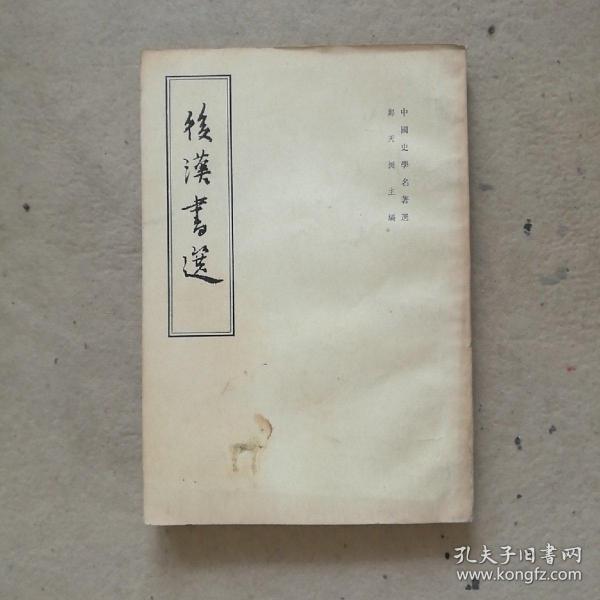 中國史學名著選
鄭天挺主編
後漢書選
孔夫子旧書网
www.kongfz.com